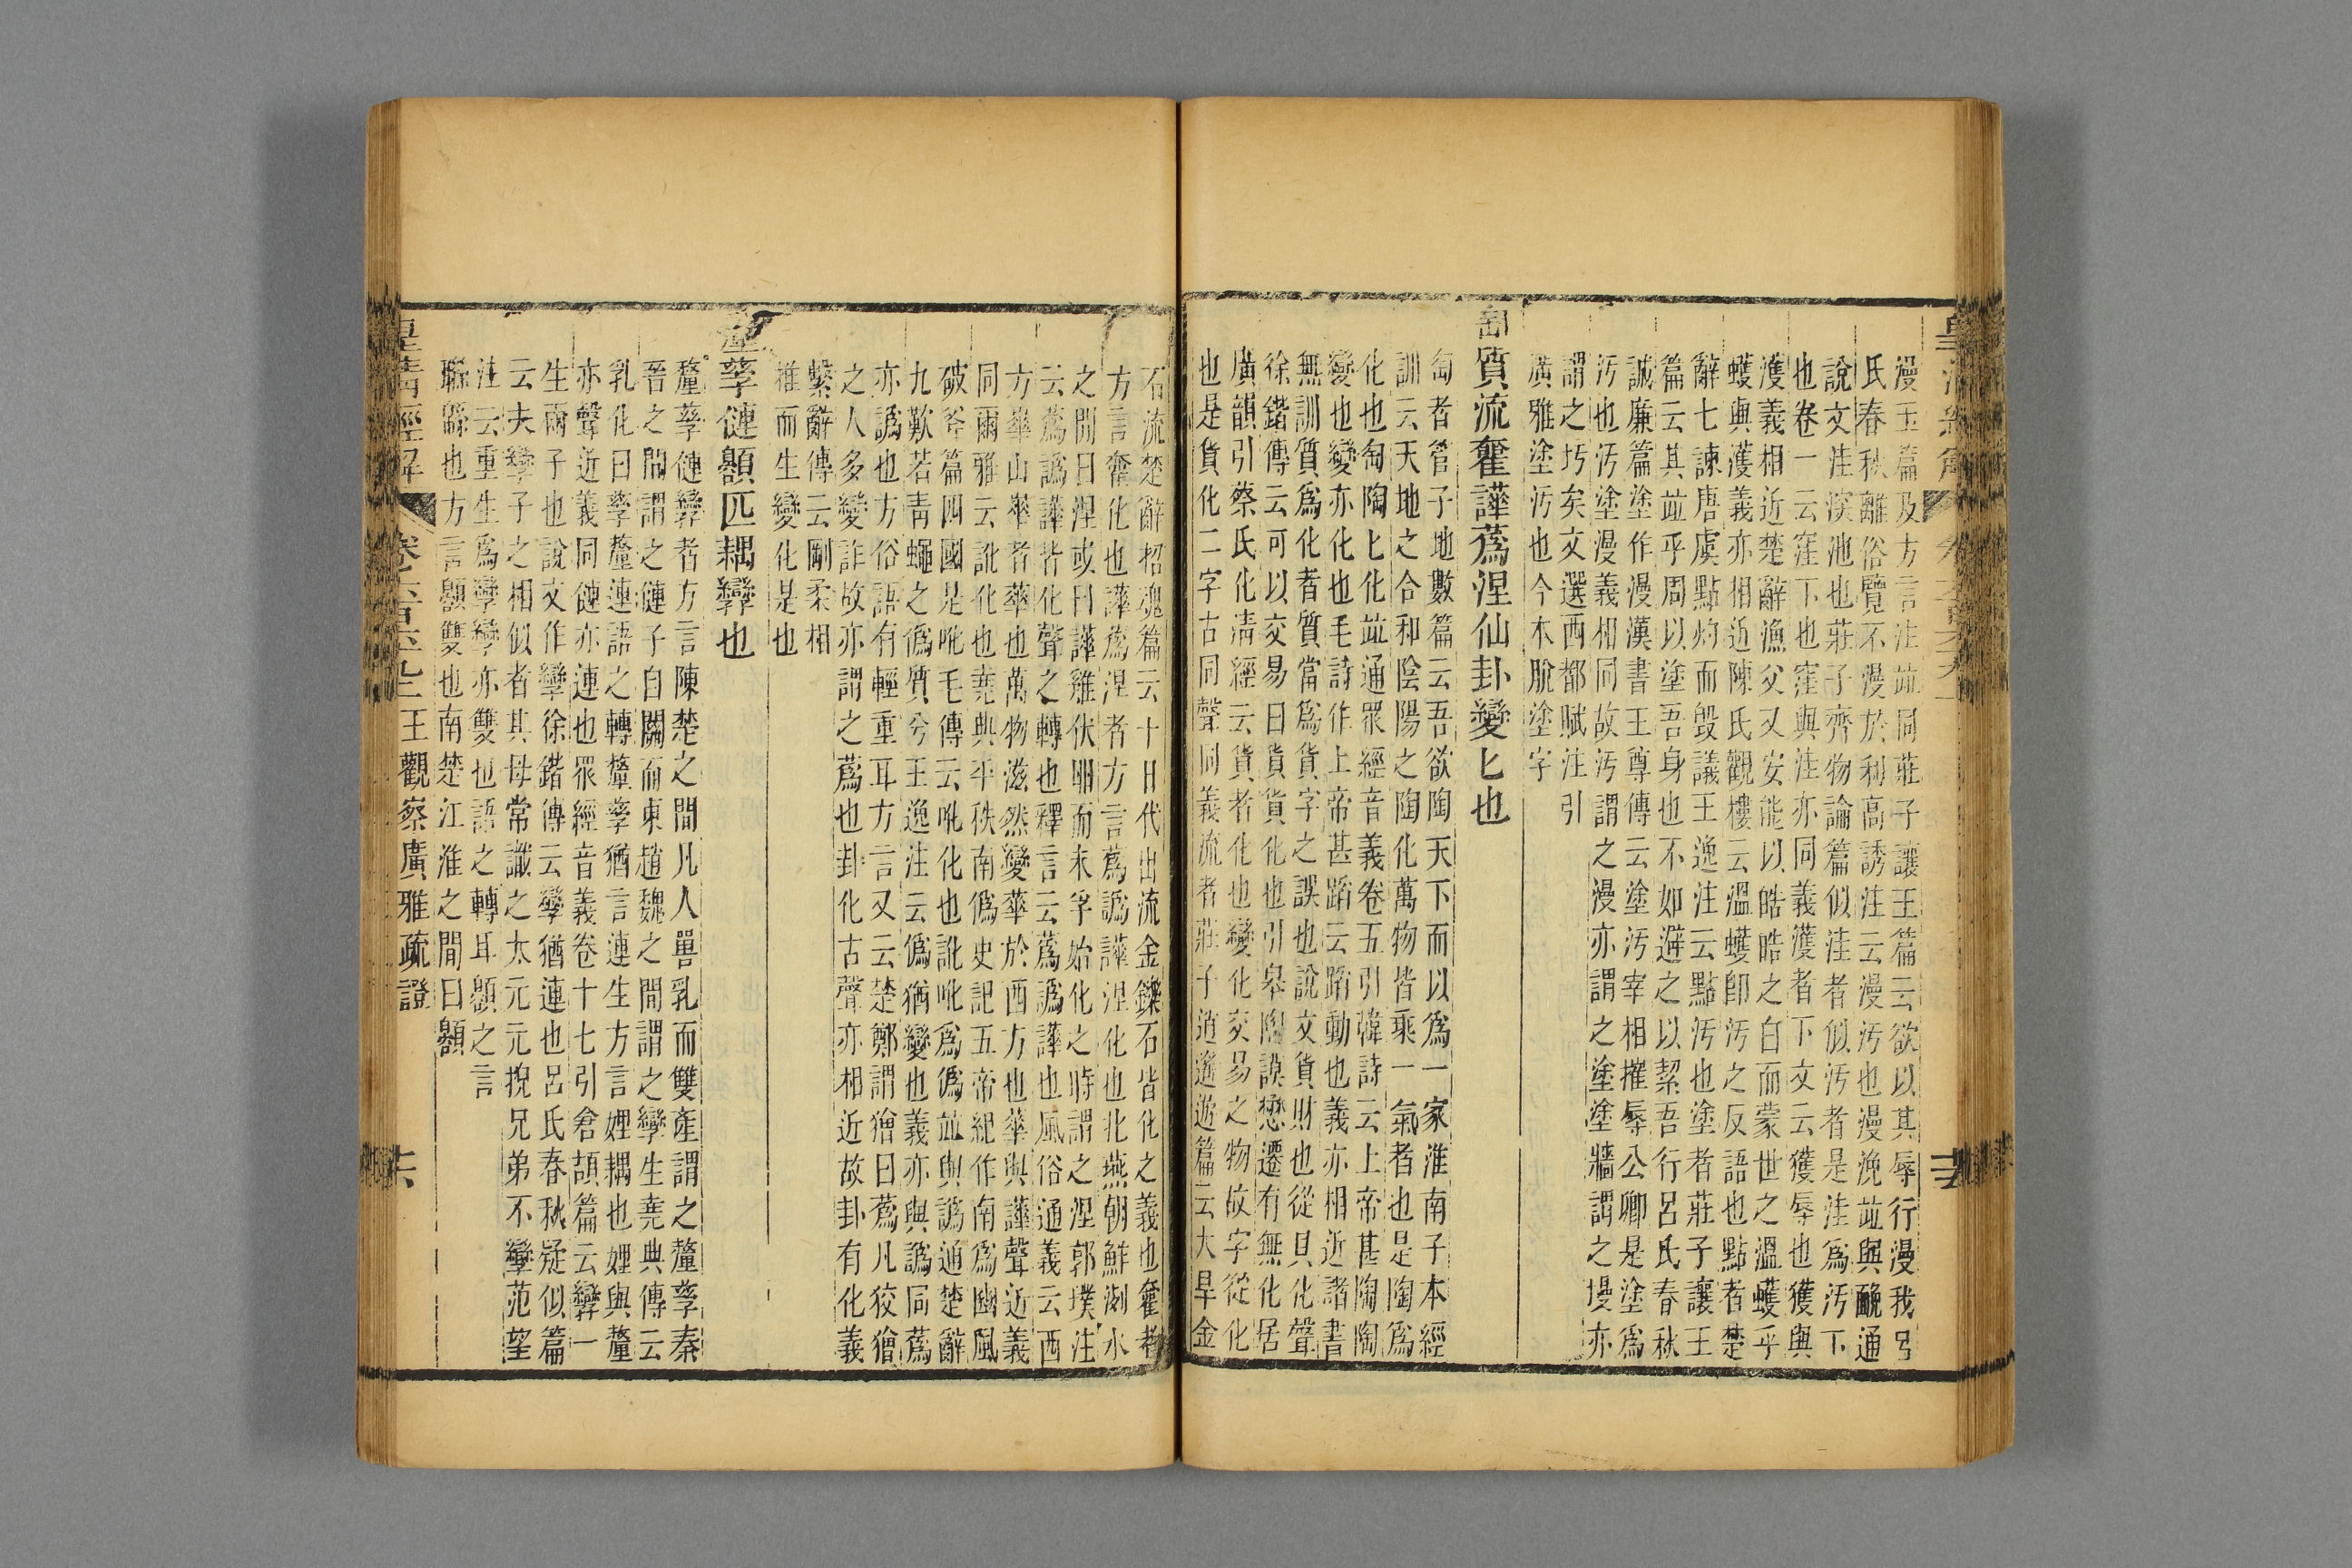 漫玉篇及方言注竝同莊子讓王篇云欲以其辱行漫我呂
氏春秋離俗覽不漫於利高誘注云漫汚也漫浼竝與𨣥通
說文洼深池也莊子齊物論篇似洼者似汚者是洼爲汚下
也卷一云窪下也窪與洼亦同義濩者下文云獲辱也獲與
濩義相近楚辭漁父又安能以皓皓之白而蒙世之溫蠖乎
蠖與濩義亦相近陳氏觀樓云溫蠖卽汚之反語也點者楚
辭七諫唐虞點灼而毀議王逸注云點汚也塗者莊子讓王
篇云其竝乎周以塗吾身也不如避之以絜吾行呂氏春秋
誠廉篇塗作漫漢書王尊傳云塗汚宰相摧辱公卿是塗爲
汚也汚塗漫義相同故汚謂之漫亦謂之塗塗牆謂之墁亦
謂之圬矣文選西都賦注引
廣雅塗汚也今本脫塗字
匋質流奞譁蔿涅仙卦變匕也
匋者管子地數篇云吾欲陶天下而以爲一家淮南子本經
訓云天地之合和陰陽之陶化萬物皆乘一氣者也是陶爲
化也匋陶匕化竝通眾經音義卷五引韓詩云上帝甚陶陶
變也變亦化也毛詩作上帝甚蹈云蹈動也義亦相近諸書
無訓質爲化者質當爲貨字之誤也說文貨財也從貝化聲
徐鍇傳云可以交易曰貨貨化也引皋陶謨懋遷有無化居
廣韻引蔡氏化淸經云貨者化也變化交易之物故字從化
也是貨化二字古同聲同義流者莊子逍遙遊篇云大旱金
石流楚辭招魂篇云十日代出流金鑠石皆化之義也奞者
方言奞化也譁蔿涅者方言蔿譌譁涅化也北燕朝鮮洌水
之閒曰涅或曰譁雞伏卵而未孚始化之時謂之涅郭璞注
云蔿譌譁皆化聲之轉也釋言云蔿譌譁也風俗通義云西
方華山華者華也萬物滋然變華於西方也華與譁聲近義
同爾雅云訛化也堯典平秩南僞史記五帝紀作南爲豳風
破斧篇四國是吪毛傳云吪化也訛吪爲僞竝與譌通楚辭
九歎若靑蠅之僞質兮王逸注云僞猶變也義亦與譌同蔿
亦譌也方俗語有輕重耳方言又云楚鄭謂獪曰蔿凡狡獪
之人多變詐故亦謂之蔿也卦化古聲亦相近故卦有化義
繫辭傳云剛柔相
推而生變化是也
釐孳健𩕳匹耦孿也
釐孳健孿者方言陳楚之閒凡人嘼乳而雙產謂之釐孳秦
晉之閒謂之健子自關而東趙魏之閒謂之孿生堯典傳云
乳化曰孳釐連語之轉釐孳猶言連生方言娌耦也娌與釐
亦聲近義同健亦連也眾經音義卷十七引倉頡篇云孿一
生兩子也說文作孿徐鍇傳云孿猶連也呂氏春秋疑似篇
云夫孿子之相似者其母常識之太元元掜兄弟不孿范望
注云重生爲孿孿亦雙也語之轉耳𩕳之言
聯緜也方言𩕳雙也南楚江淮之閒曰𩕳
皇淸經解
卷六百六十九 王觀察廣雅疏證